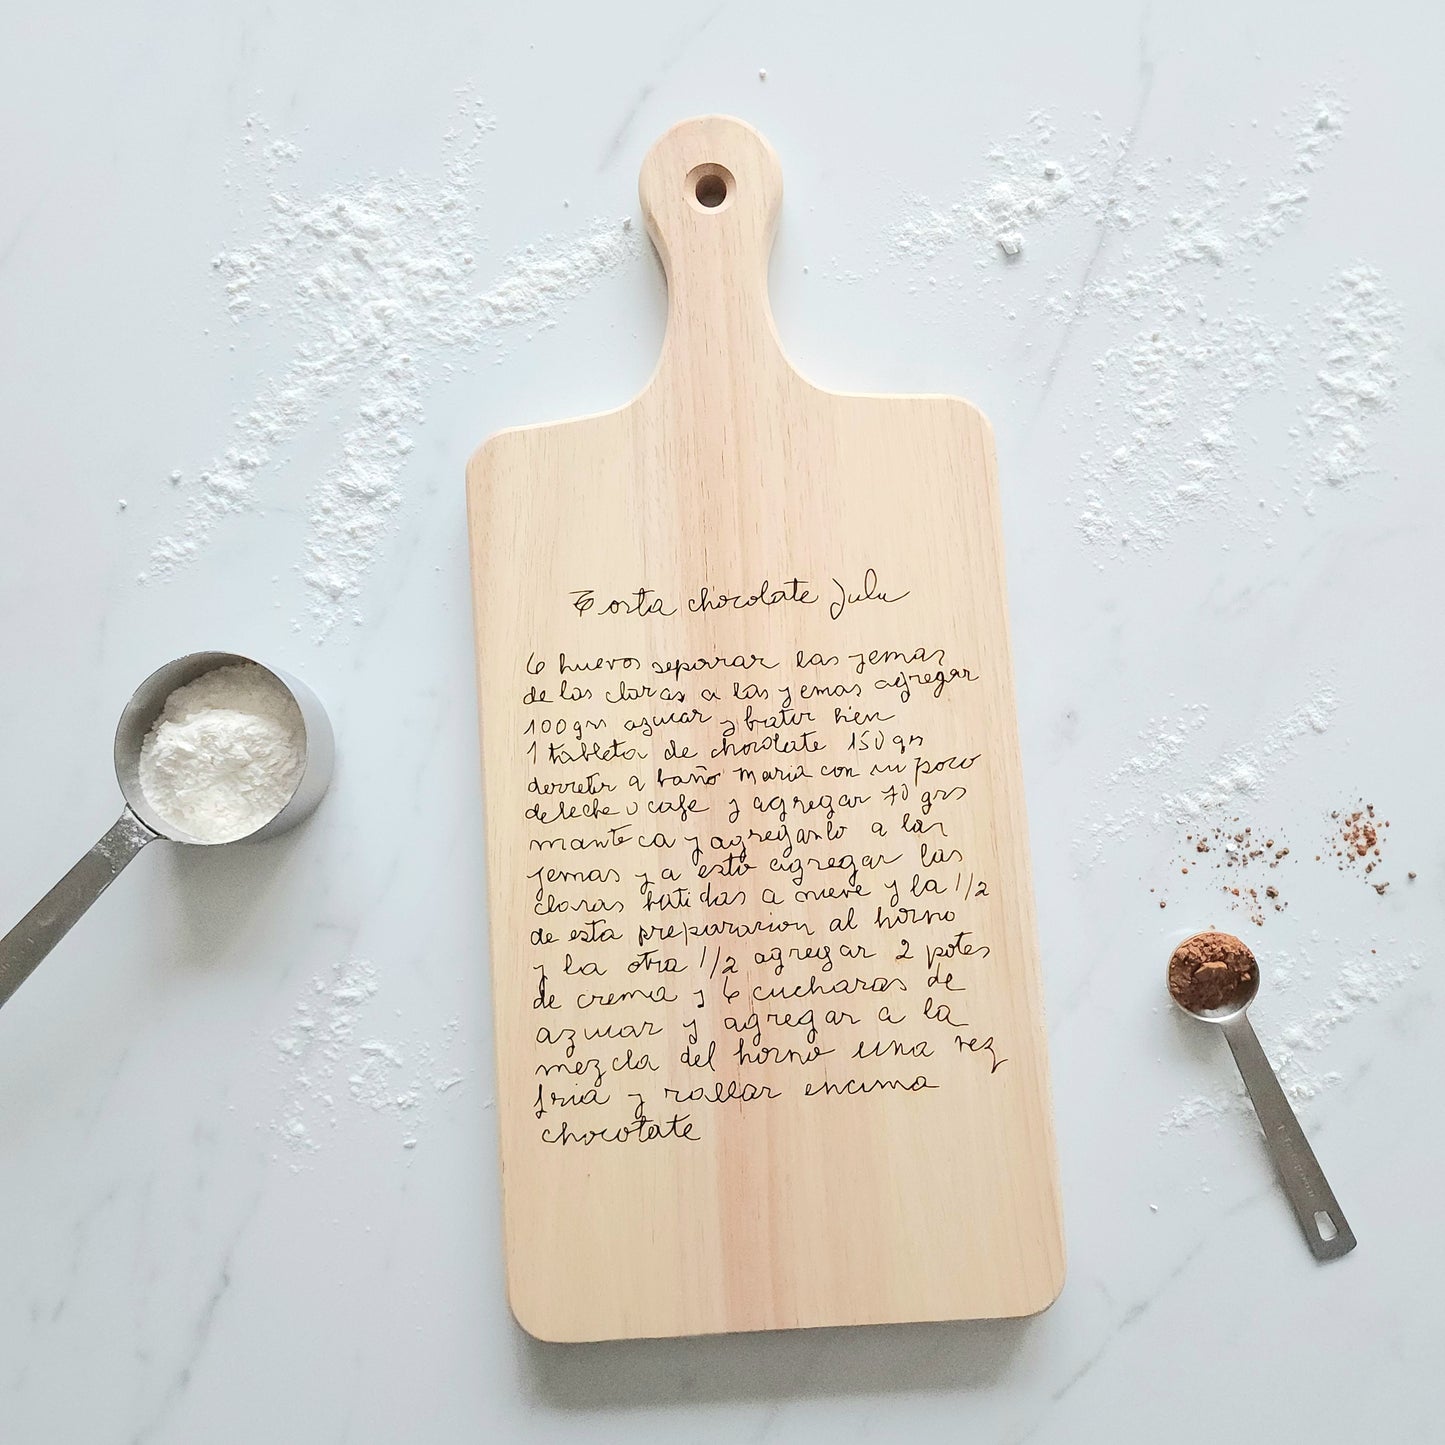 Torta chocolate Julu
6 huevos separar las yemas
de las claras a las yemas agregar
100grs azucar y batir bien
1 tableta de chocolate 150 grs
derretir a baño maria con un poco
de leche o cafe y agregar 70 grs
manteca y agreganlo a las
yemas y a esto agregar las
claras batidas a nieve y la 1/2
de esta preparacion al horno
y la otra 1/2 agregar 2 potes
de crema y 6 cucharas de
azucar y agregar a la
mezcla del horno una vez
fria y rallar encima
chocolate